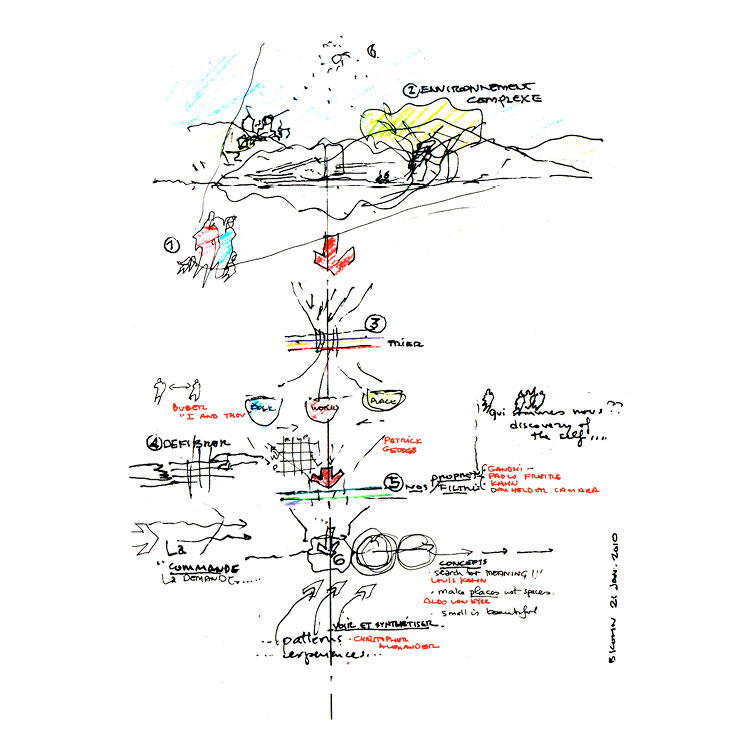 ② ENVIRONNEMENT
COMPLEXE
①
③
TRIER
BUBER
"I AND THOU
FOLK
WORK
PLACE
qui sommes nous ??
discovery of
the self....
④ DEFIBRER
PATRICK
GEDDES
⑤ NOS PROPRES
FILTRES
GANDHI
PAOLO FREIRE
KAHN
DOM HELDER CAMARA
La
"COMMANDE
LA DEMANDE.....
6
CONCEPTS
- search for MEANING!!"
LOUIS KAHN
· make places not spaces.
ALDO VAN EYCK
· small is beautiful
VOIR ET SYNTHÉTISER.
... patterns · CHRISTOPHER
ALEXANDER
... experiences...
B KOHN 21 JAN. 2010